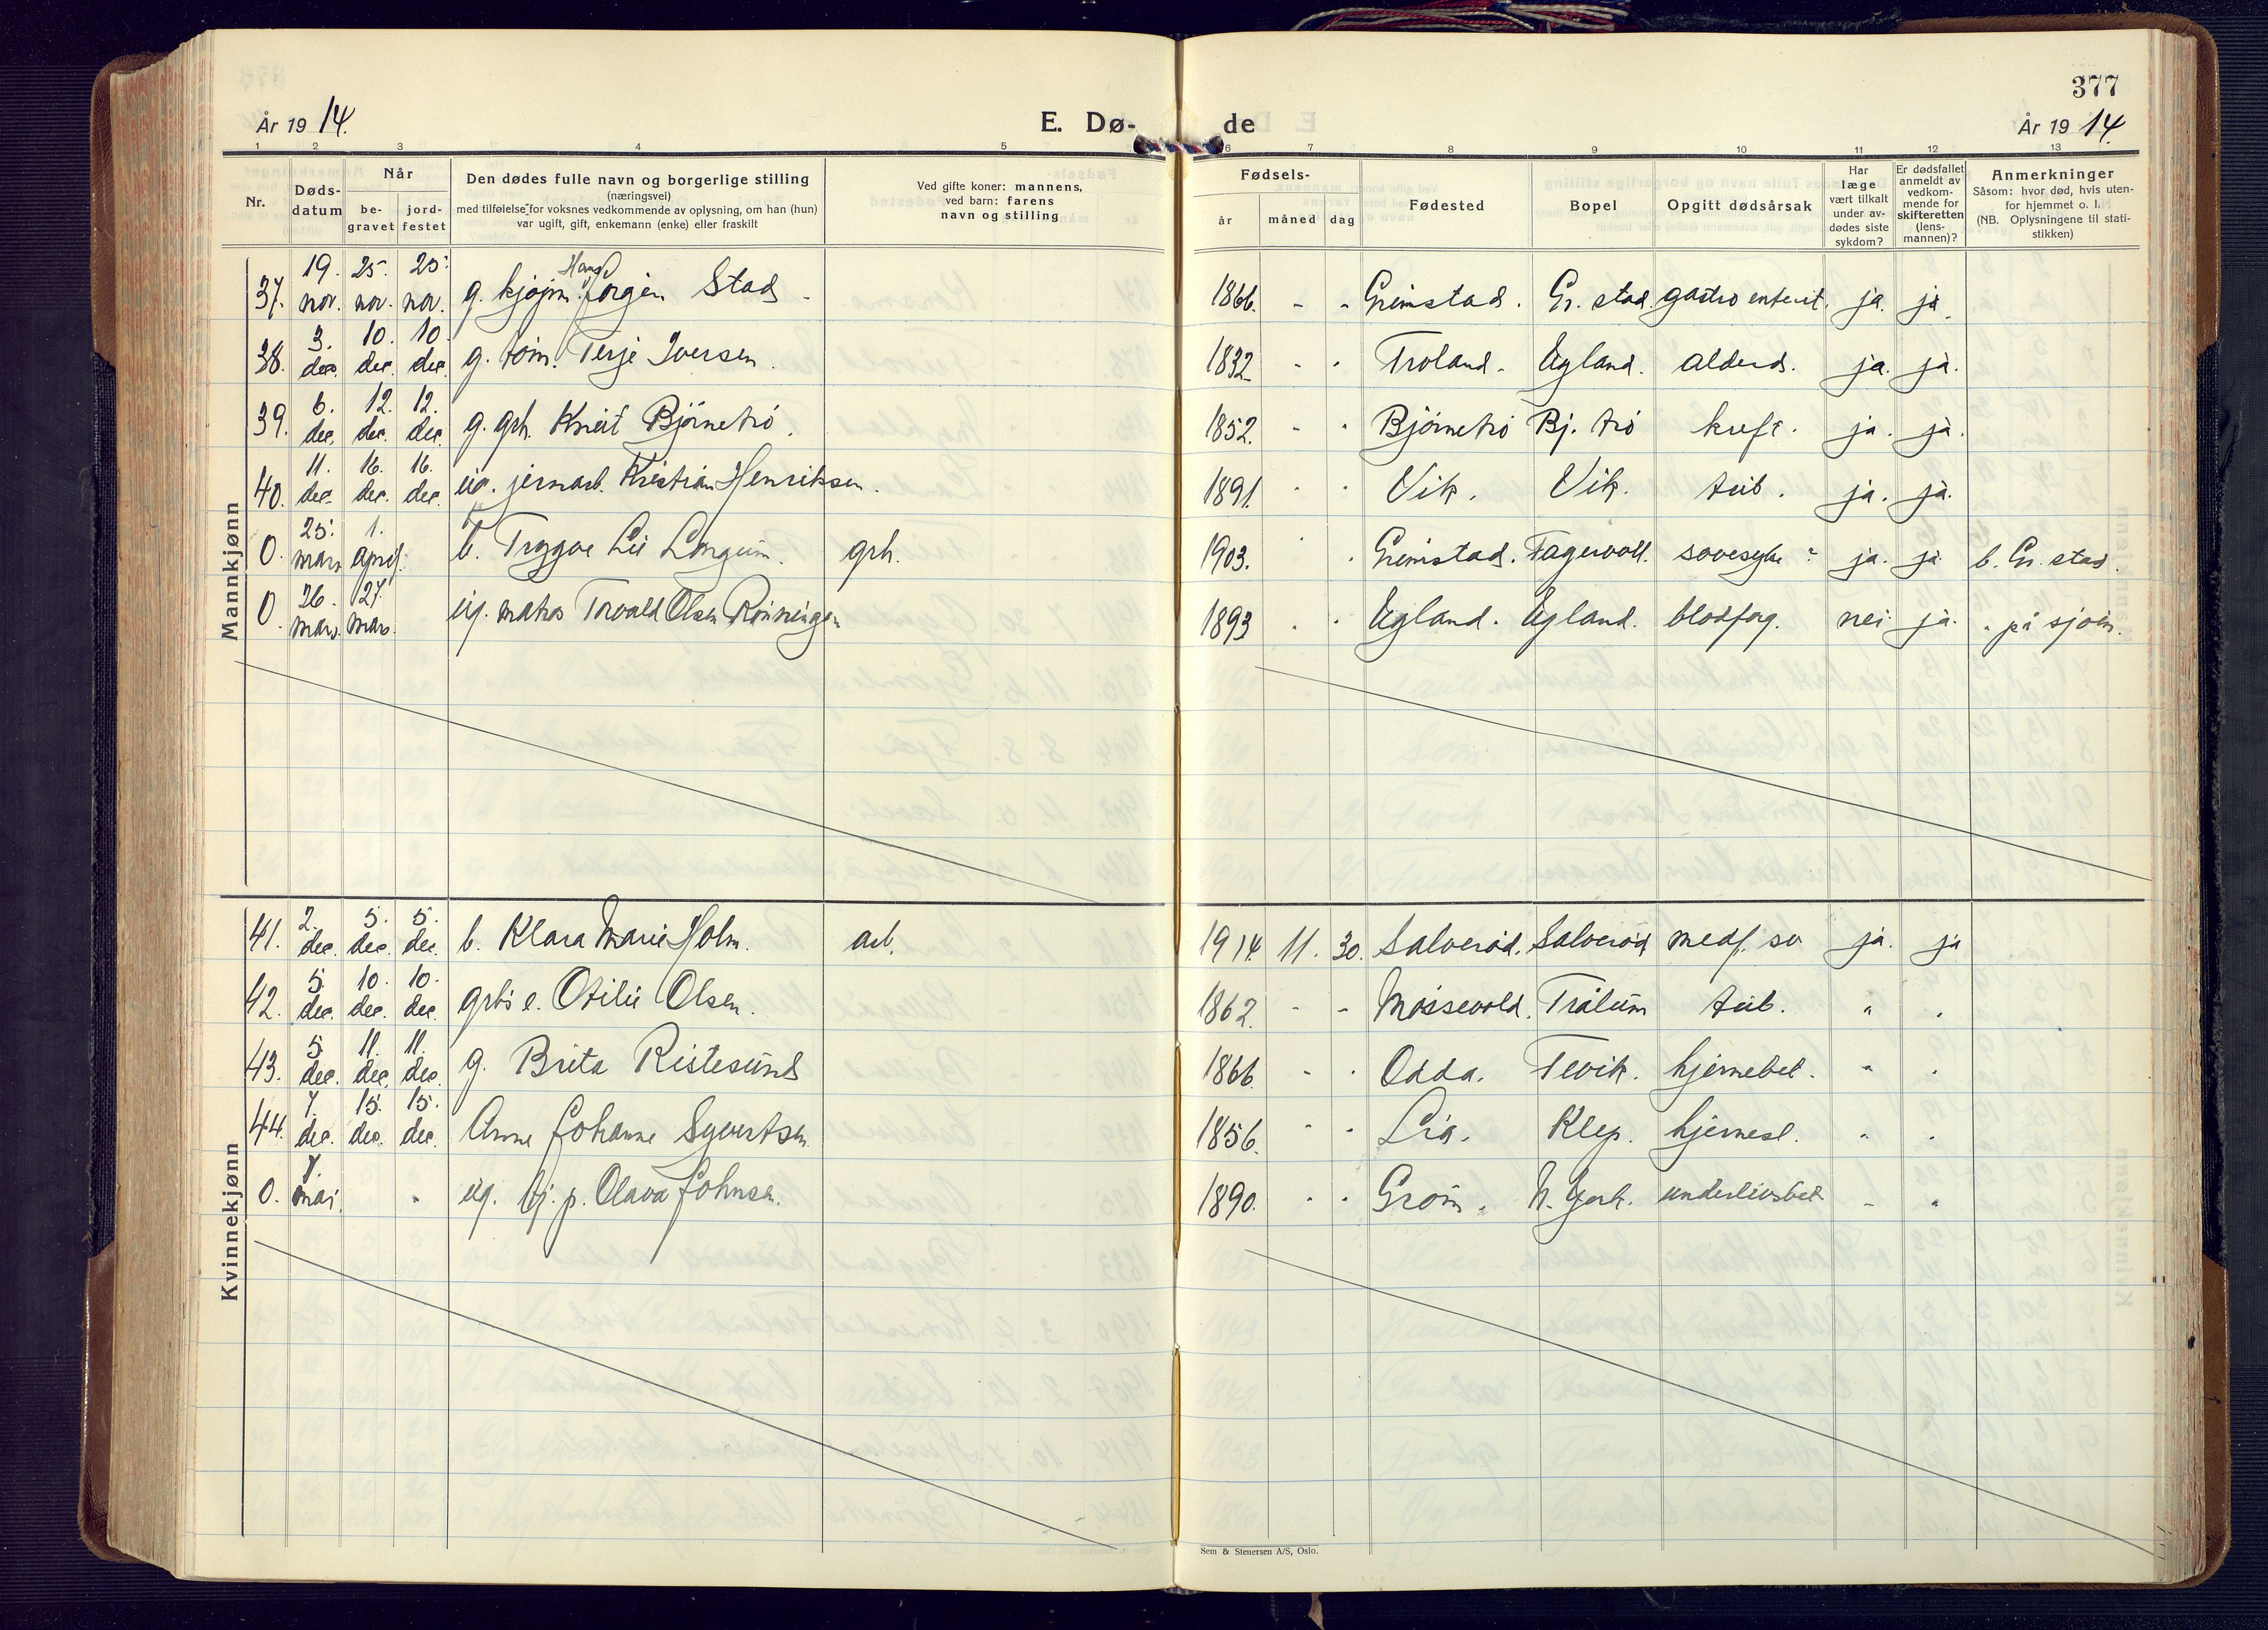 377
År 19 14.
E. Dø-
de
År 19 14.
1 2 3 4 5 6 7 8 9 10 11 12 13
Nr.
Døds-
datum
Når
be-
gravet
jord-
festet
Den dødes fulle navn og borgerlige stilling
(næringsvei)
med tilføielse for voksnes vedkommende av oplysning, om han (hun)
var ugift, gift, enkemann (enke) eller fraskilt
Ved gifte koner: mannens,
ved barn: farens
navn og stilling
Fødsels-
år måned dag
Fødested
Bopel
Opgitt dødsårsak
Har
læge
vært tilkalt
under av-
dødes siste
sykdom?
Er dødsfallet
anmeldt av
vedkom-
mende for
skifteretten
(lens-
mannen)?
Anmerkninger
Såsom: hvor død, hvis uten-
for hjemmet o. l.
(NB. Oplysningene til stati-
stikken)
Mannkjønn
37. 19. nov. 25. nov. 25. nov. g. kjøpm. Hans Jørgen Stad 1866. - - Grimstad. Gr. stad gastro enterit. ja. ja.
38. 3. dec. 10. dec. 10. dec. g. tøm. Terje Iversen. 1832 - - Troland. Egland. alderd. ja. ja.
39. 6. dec. 12. dec. 12. dec. g. grh. Knut Bjørnetrø. 1852. - - Bjørnetrø Bj. trø kreft. ja. ja.
40. 11. dec. 16. dec. 16. dec. ug. jernarb. Kristian Henriksen. 1891. - - Vik. Vik. tub. ja. ja.
0. 25. mars 1. april. b. Trygve Lie Longum. grh. 1903. Grimstad. Fagervoll. sovesyke? ja. ja b. Gr. stad.
0. 26. mars. 27. mars ug. matros Torvald Olsen Rønningen 1893 - - Egland. Egland. blodforg. nei ja. på sjøen.
Kvinnekjønn
41. 2. dec. 5. dec. 5. dec. b. Klara Marie Holm. arb. 1914 11. 30. Salverød. Salverød medf. sv ja. ja
42. 5. dec. 10. dec. 10. dec. grbs e. Otilie Olsen. 1862. - - Mossevold. Trålum tub. " "
43. 5. dec. 11. dec. 11. dec. g. Brita Ristesund 1866. - - Odda. Fevik. hjernebet. " "
44. 7. dec. 15. dec. 15. dec. Anne Johanne Syvertsen 1856. - - Lia. Klep. hjernesl. " "
0. 7. mai. ug. tj. p. Olava Johnsen. 1890. - - Grøm. N. York. underlivsbet. " "
Sem & Stenersen A/S, Oslo.